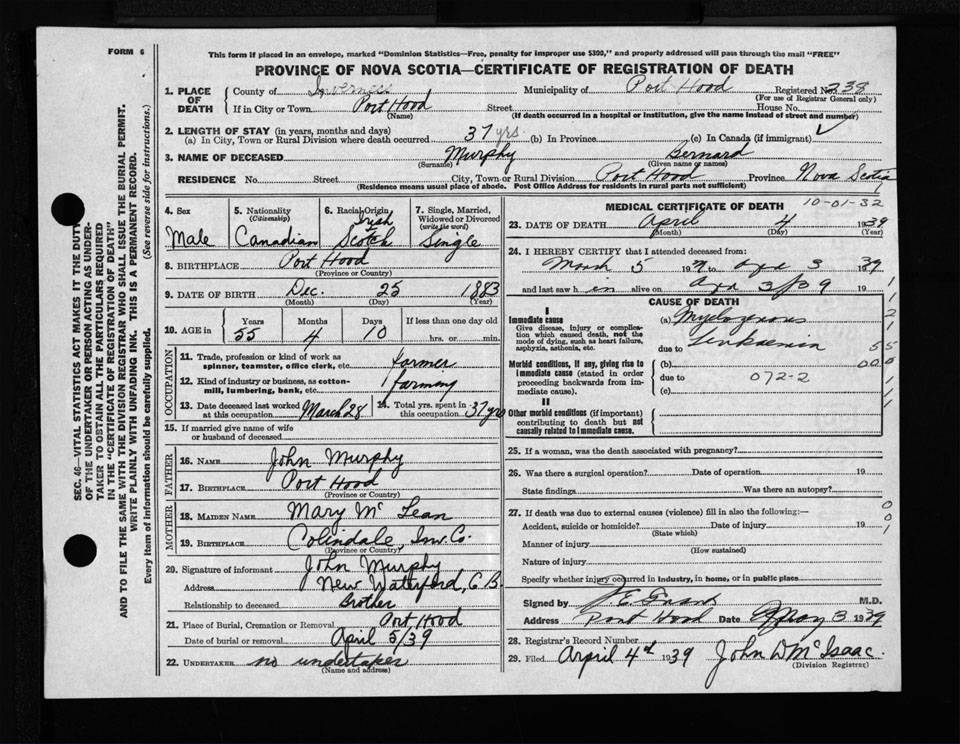 FORM 6
This form if placed in an envelope, marked "Dominion Statistics—Free, penalty for improper use $300," and properly addressed will pass through the mail "FREE"
PROVINCE OF NOVA SCOTIA—CERTIFICATE OF REGISTRATION OF DEATH
1. PLACE OF DEATH County of Inverness Municipality of Port Hood Registered No. 238
(For use of Registrar General only)
If in City or Town Port Hood Street House No.
(Name) (If death occurred in a hospital or institution, give the name instead of street and number)
2. LENGTH OF STAY (in years, months and days)
(a) In City, Town or Rural Division where death occurred 37 yrs. (b) In Province (c) In Canada (if immigrant) ✓
3. NAME OF DECEASED Murphy Bernard
(Surname) (Given name or names)
RESIDENCE No. Street City, Town or Rural Division Port Hood Province Nova Scotia
(Residence means usual place of abode. Post Office Address for residents in rural parts not sufficient)
4. Sex Male
5. Nationality (Citizenship) Canadian
6. Racial Origin Irish Scotch
7. Single, Married, Widowed or Divorced (write the word) Single
8. BIRTHPLACE Port Hood
(Province or Country)
9. DATE OF BIRTH Dec. 25 1883
(Month) (Day) (Year)
10. AGE in Years 55 Months 4 Days 10 If less than one day old hrs. or min.
OCCUPATION
11. Trade, profession or kind of work as spinner, teamster, office clerk, etc. Farmer
12. Kind of industry or business, as cotton-mill, lumbering, bank, etc. Farming
13. Date deceased last worked at this occupation March 28
14. Total yrs. spent in this occupation 37 yrs
15. If married give name of wife or husband of deceased
FATHER
16. NAME John Murphy
17. BIRTHPLACE Port Hood
(Province or Country)
MOTHER
18. MAIDEN NAME Mary Mc Lean
19. BIRTHPLACE Colindale, Inv. Co.
(Province or Country)
20. Signature of informant John Murphy
Address New Waterford, C B.
Relationship to deceased Brother
21. Place of Burial, Cremation or Removal Port Hood
Date of burial or removal April 5/39
22. UNDERTAKER no undertaker
(Name and address)
MEDICAL CERTIFICATE OF DEATH 10-01-32
23. DATE OF DEATH April 4 1939
(Month) (Day) (Year)
24. I HEREBY CERTIFY that I attended deceased from:
March 5 19 to 3 1939
and last saw h im alive on 3/39 19
CAUSE OF DEATH
I
Immediate cause
Give disease, injury or complication which caused death, not the mode of dying, such as heart failure, asphyxia, asthenia, etc.
(a) Myelogenous
due to Leukaemia
Morbid conditions, if any, giving rise to immediate cause (stated in order proceeding backwards from immediate cause).
(b)
due to 072-2
(c)
II
Other morbid conditions (if important) contributing to death but not causally related to immediate cause.
25. If a woman, was the death associated with pregnancy?
26. Was there a surgical operation? Date of operation 19
State findings Was there an autopsy?
27. If death was due to external causes (violence) fill in also the following:—
Accident, suicide or homicide? Date of injury 19
(State which)
Manner of injury
(How sustained)
Nature of injury
Specify whether injury occurred in industry, in home, or in public place
Signed by M.D.
Address Port Hood Date May 3 1939
28. Registrar's Record Number
29. Filed April 4th 1939 John D Mc Isaac.
(Division Registrar)
SEC. 46—VITAL STATISTICS ACT MAKES IT THE DUTY OF THE UNDERTAKER OR PERSON ACTING AS UNDERTAKER TO OBTAIN ALL THE PARTICULARS REQUIRED IN THE "CERTIFICATE OF REGISTRATION OF DEATH" AND TO FILE THE SAME WITH THE DIVISION REGISTRAR WHO SHALL ISSUE THE BURIAL PERMIT.
WRITE PLAINLY WITH UNFADING INK. THIS IS A PERMANENT RECORD.
Every item of information should be carefully supplied. (See reverse side for instructions.)